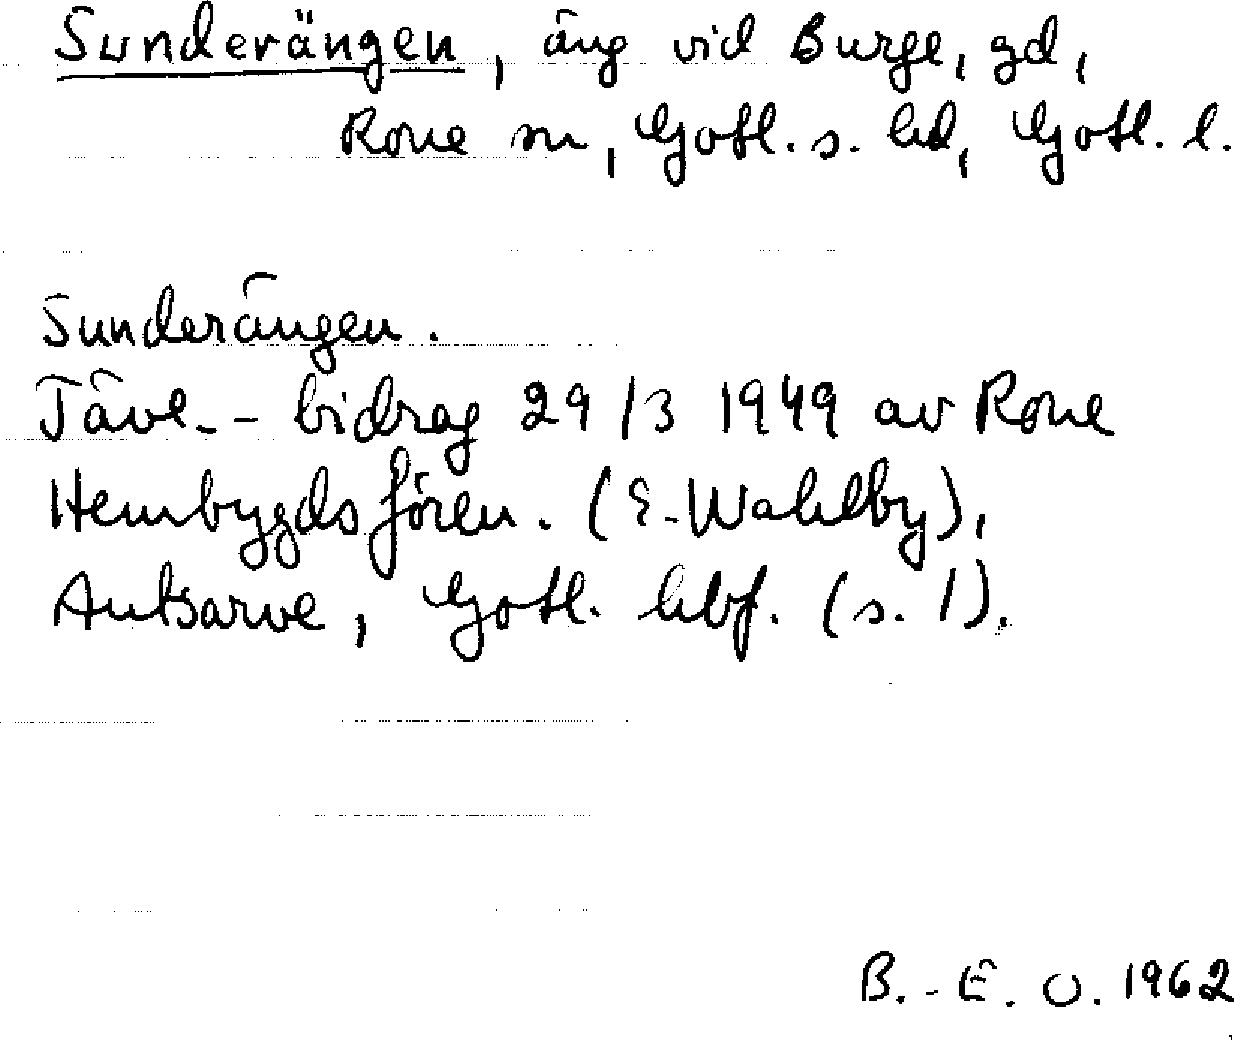 Sunderängen, äng vid Burge, gd,
Rone sn, Gotl. s. hd, Gotl. l.
Sunderängen.
Tävl. - bidrag 29/3 1949 av Rone
Hembygdsfören. (E. Wahlby),
Autsarve, Gotl. hbf. (s. 1).
B.-E. O. 1962